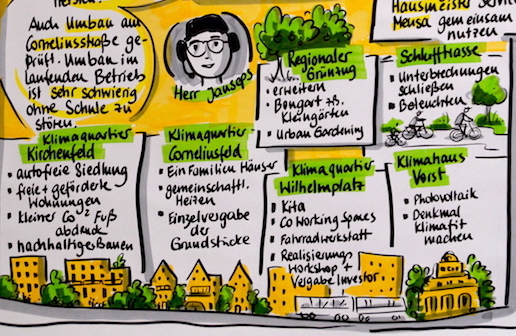 Auch Umbau auf
Corneliusstraße ge-
prüft. Umbau im
laufenden Betrieb
ist sehr schwierig
ohne Schule zu
stören
Herr
Regionaler
Grünzug
• erweitern
• Bongart z.B.
Kleingärten
• Urban Gardening
Hausmeister
Mensa gemeinsam
nutzen
Schlufftrasse
• Unterbrechungen
schließen
• Beleuchten
Klimaquartier
Kirchenfeld
• autofreie Siedlung
• freie + geförderte
Wohnungen
• kleiner CO2 Fuß
abdruck
• nachhaltiges Bauen
Klimaquartier
Corneliusfeld
• Ein Familien Häuser
• gemeinschaftl.
Heizen
• Einzelvergabe
der
Grundstücke
Klimaquartier
Wilhelmplatz
• Kita
• Co Working Spaces
• Fahrradwerkstatt
• Realisierungs
Workshop +
Vergabe Investor
Klimahaus
Vorst
• Photovoltaik
• Denkmal
Klimafit
machen